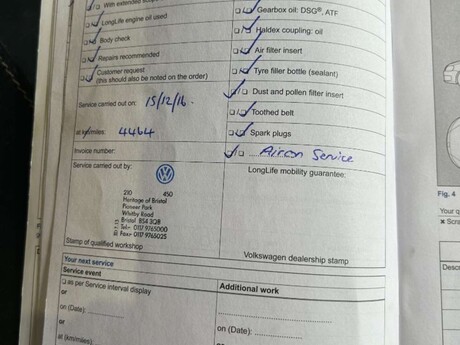 With extended scope
Gearbox oil: DSG®, ATF
LongLife engine oil used
Haldex coupling: oil
Body check
Air filter insert
Repairs recommended
Tyre filler bottle (sealant)
Customer request
(this should also be noted on the order)
Dust and pollen filter insert
Service carried out on: 15/12/16
Toothed belt
at km/miles: 4464
Spark plugs
Invoice number:
Aircon Service
Service carried out by:
LongLife mobility guarantee:
210 450
Heritage of Bristol
Pioneer Park
Whitby Road
Bristol BS4 3QB
Tel:- 0117 9765000
Fax:- 0117 9765025
Stamp of qualified workshop
Volkswagen dealership stamp
Your next service
Service event
Additional work
as per Service interval display
or
or
on (Date):
on (Date):
or
or
at (km/miles):
Fig. 4
Your q
× Scra
Descr